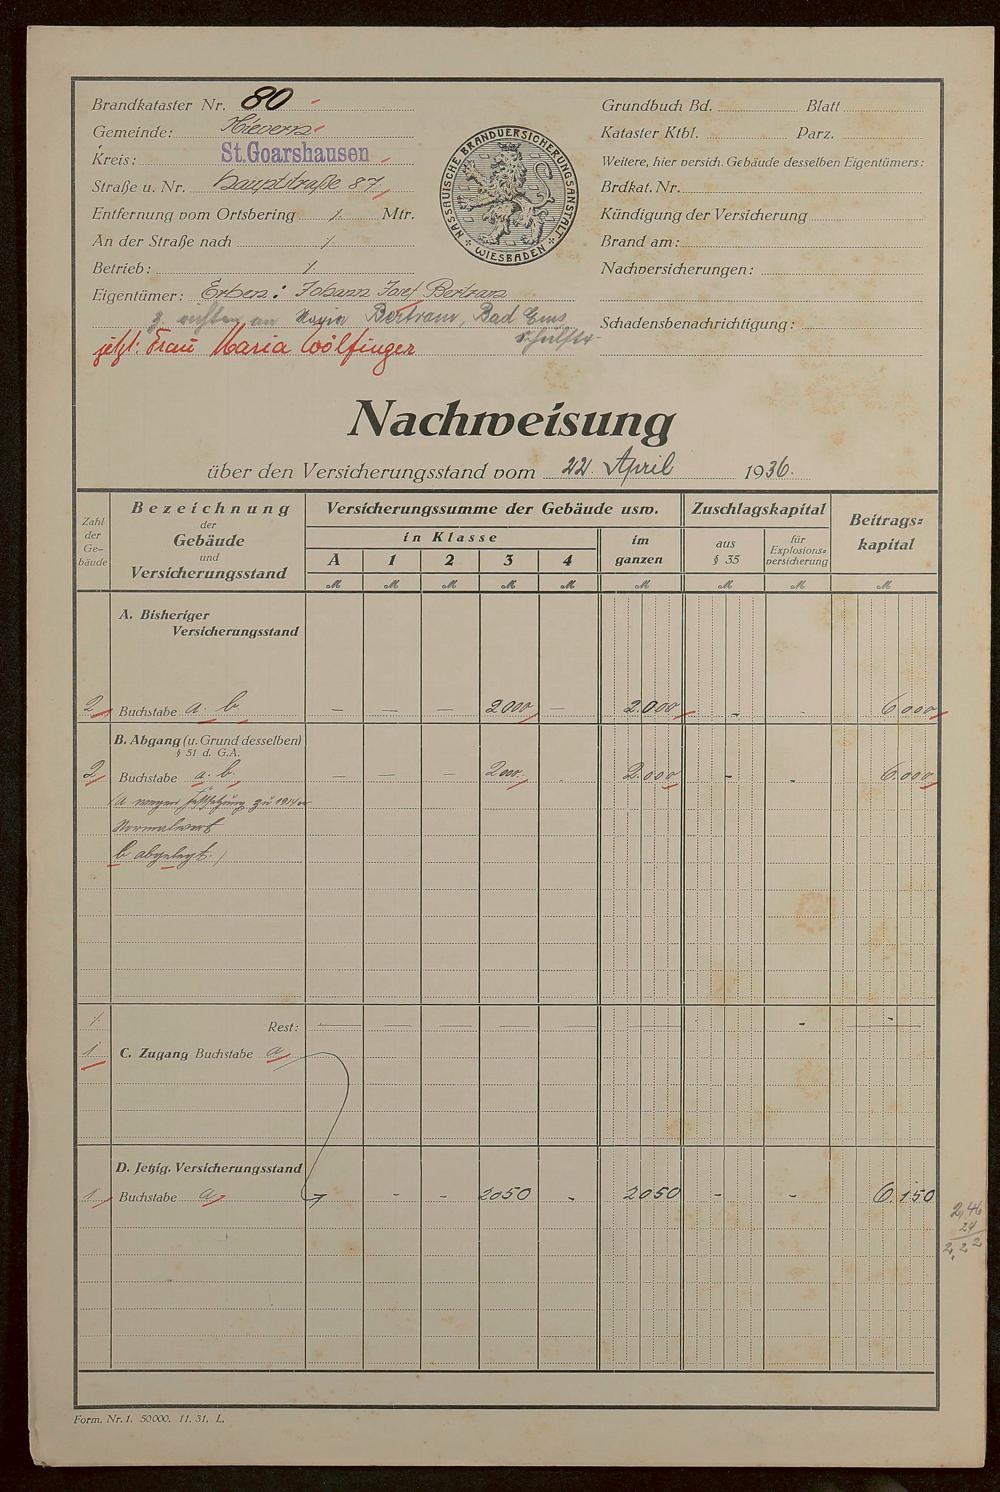 Brandkataster Nr. 80
Gemeinde: Nievern
Kreis: St. Goarshausen
Straße u. Nr. Hauptstraße 87
Entfernung vom Ortsbering ·/. Mtr.
An der Straße nach ·/.
Betrieb: ·/.
Eigentümer: Erben: Johann Josef Bertram
z. richten an Maria Bertram, Bad Ems
jetzt: Frau Maria Wölfinger
NASSAUISCHE BRANDVERSICHERUNGSANSTALT
WIESBADEN
Grundbuch Bd. Blatt
Kataster Ktbl. Parz.
Weitere, hier versich. Gebäude desselben Eigentümers:
Brdkat. Nr.
Kündigung der Versicherung
Brand am:
Nachversicherungen:
Schadensbenachrichtigung:
Nachweisung
über den Versicherungsstand vom 22. April 1936.
Zahl der Ge-bäude
Bezeichnung der Gebäude und Versicherungsstand
Versicherungssumme der Gebäude usw.
in Klasse
A 1 2 3 4
im ganzen
Zuschlagskapital
aus § 35
für Explosions-versicherung
Beitrags-kapital
M M M M M M M M M
A. Bisheriger
Versicherungsstand
2 Buchstabe a. b. — — — 2000 — 2.000 - - 6000
B. Abgang (u. Grund desselben)
§ 51 d. G.A.
2 Buchstabe a. b. — — — 2000. . 2.000 - - 6.000
(a wegen Festsetzung zu 1914er
Normalwert
b abgelegt.)
·/. Rest: — — — — — — - - —
1 C. Zugang Buchstabe a
D. Jetzig. Versicherungsstand
1 Buchstabe a - - 2050 - 2050 - - 6.150
2,46
24
2,22
Form. Nr. 1. 50000. 11. 31. L.